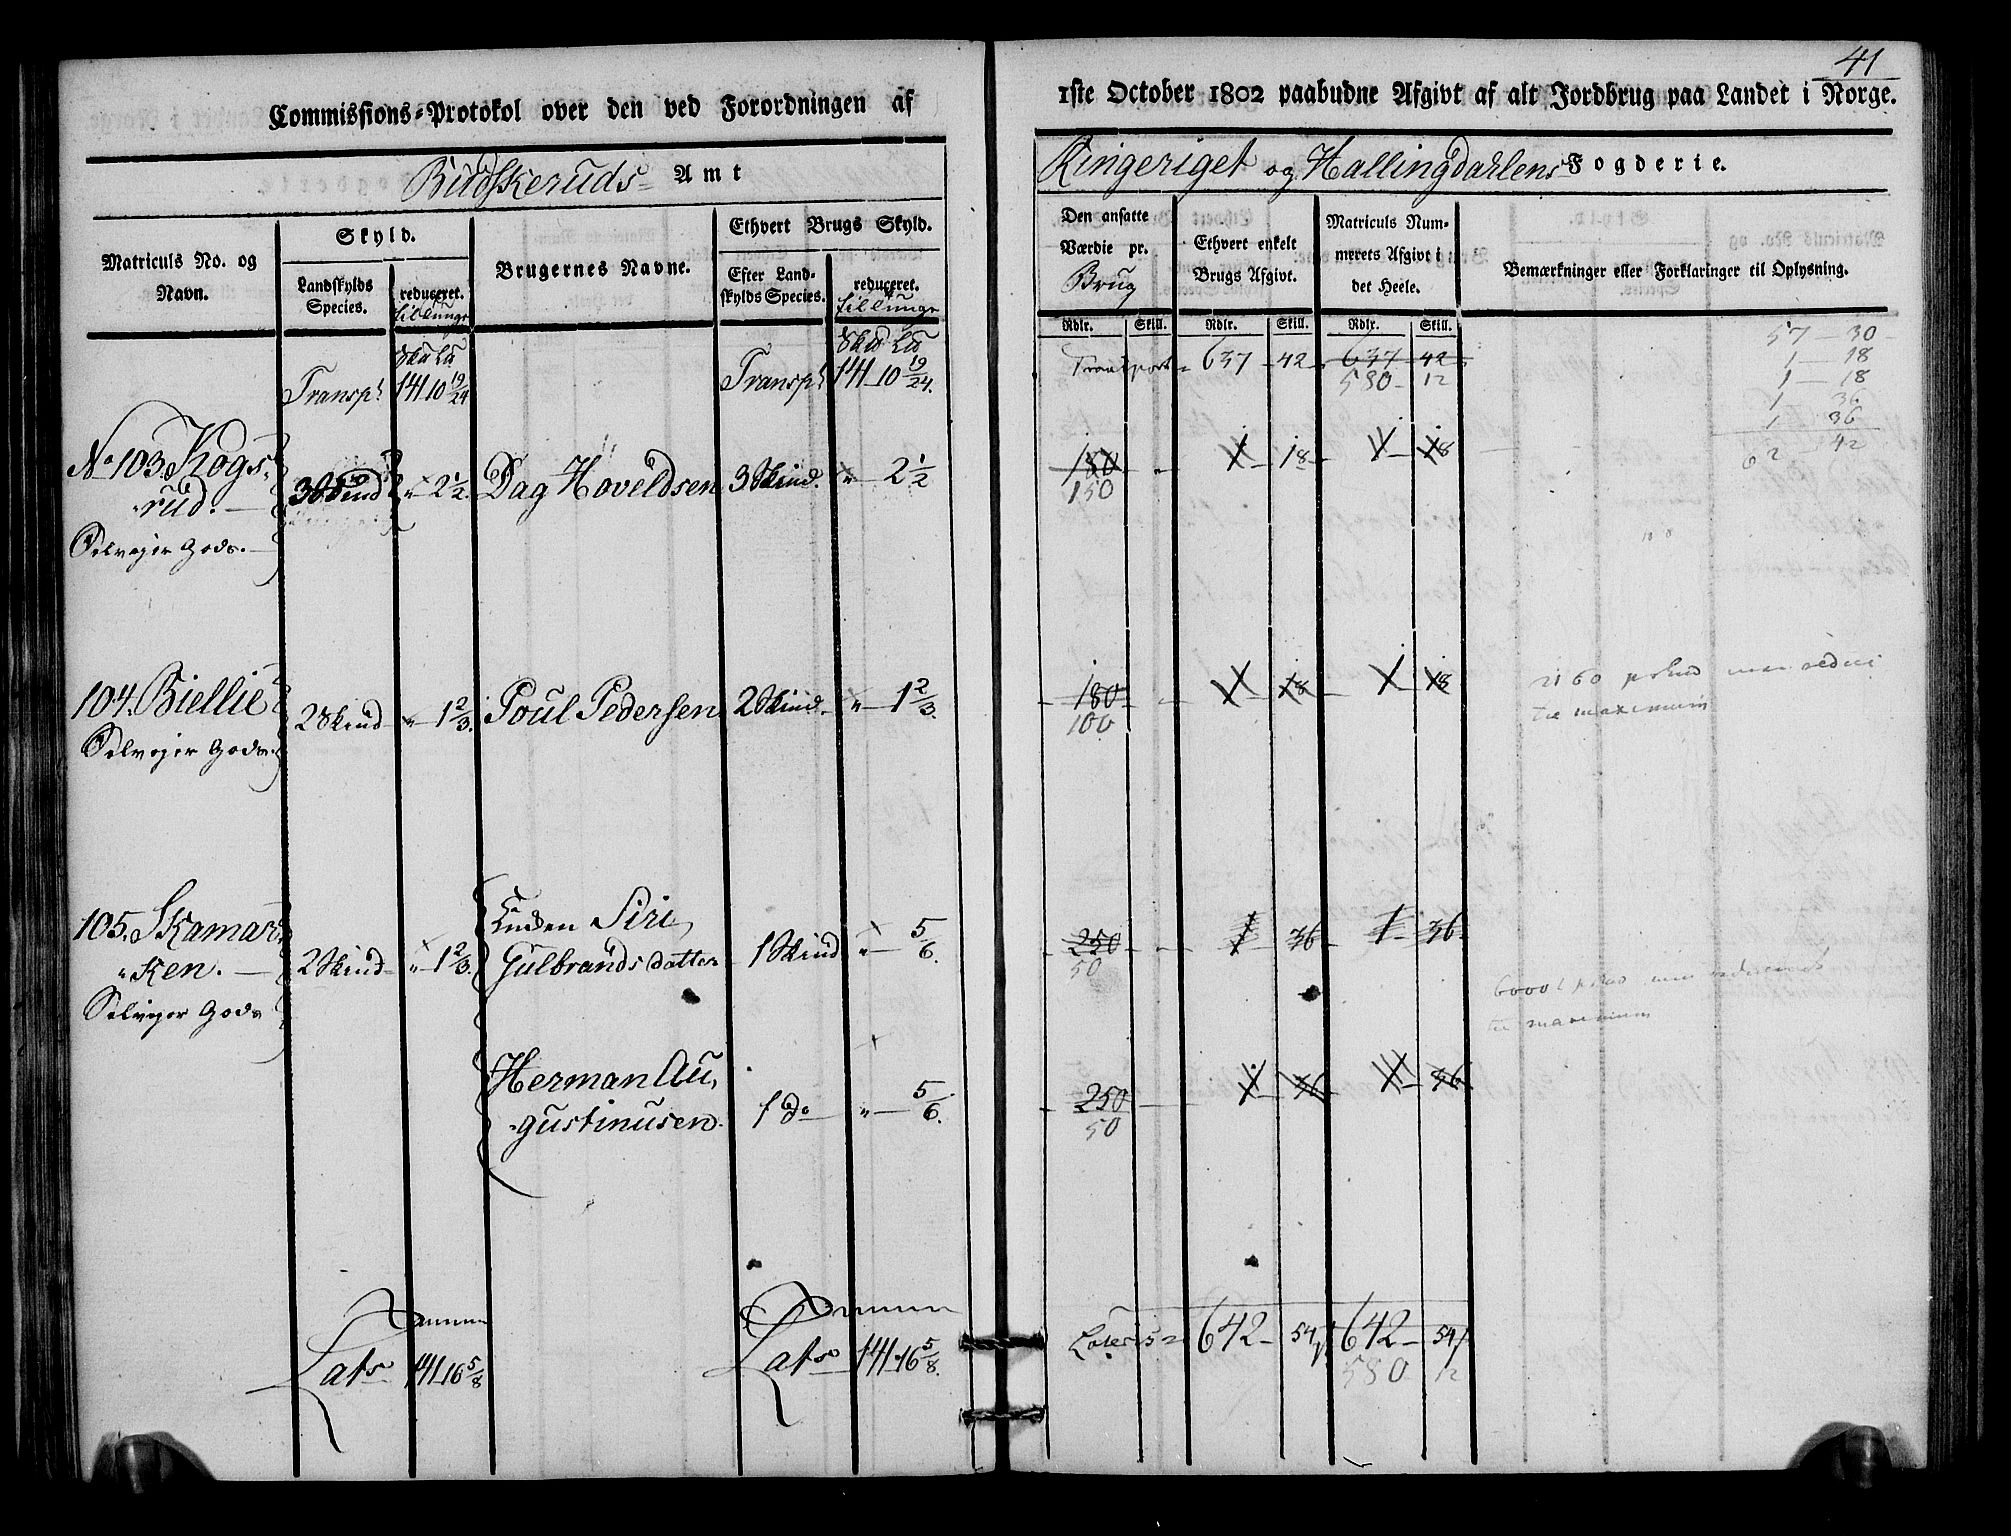 41
Commissions-Protokol over den ved Forordningen af
1ste October 1802 paabudne Afgivt af alt Jordbrug paa Landet i Norge.
Budskeruds Amt
Ringeriget og Hallingdahlens Fogderie.
Matriculs No. og Navn.
Skyld.
Landskylds Species.
reduceret.
til Tunge
Brugernes Navne.
Ethvert Brugs Skyld.
Efter Landskylds Species.
reduceret.
til Tunge
Den ansatte Værdie pr. Brug
Ethvert enkelt Brugs Afgivt.
Matriculs Nummerets Afgivt i det Heele.
Bemærkninger eller Forklaringer til Oplysning.
Rdlr. Skill. Rdlr. Skill. Rdlr. Skill.
Transpt 141 10 19/24 Transpt 141 10 19/24. Transport 637 42 637 42
580 12
57 30
1 18
1 18
1 36
1 36
62 42
No 103. Kogsrud. 3 Skind " 2 1/2. Dag Hoveldsen 3 Skind. " 2 1/2 180 1 18 1 18
150
Selvejer Gods.
104. Biellie 2 Skind " 1 2/3. Poul Pedersen 2 Skind " 1 2/3. 180 1 18 1 18
100
Selvejer Gods.
2160 til maximum
105. Skamarken. 2 Skind " 1 2/3. Enken Siri Gulbrandsdatter 1 Skind " 5/6. 250 1 36 1 36
50
Selvejer Gods
til maximum
Herman Augustinusen 1 do " 5/6. 250 1 36 1 36
50
Summa Summa
Lats 141 16 5/8 Lats 141 16 5/8. Lateris 642 54 642 54
580 12